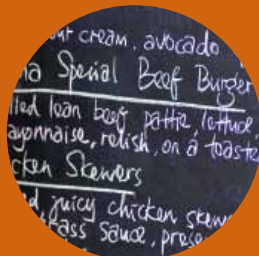 ur cream, avocado
na Special Beef Burger
lled lean beef pattie, lettuce,
ayonnaise, relish, on a toaste
cken Skewers
d juicy chicken skew
rass sauce, prese